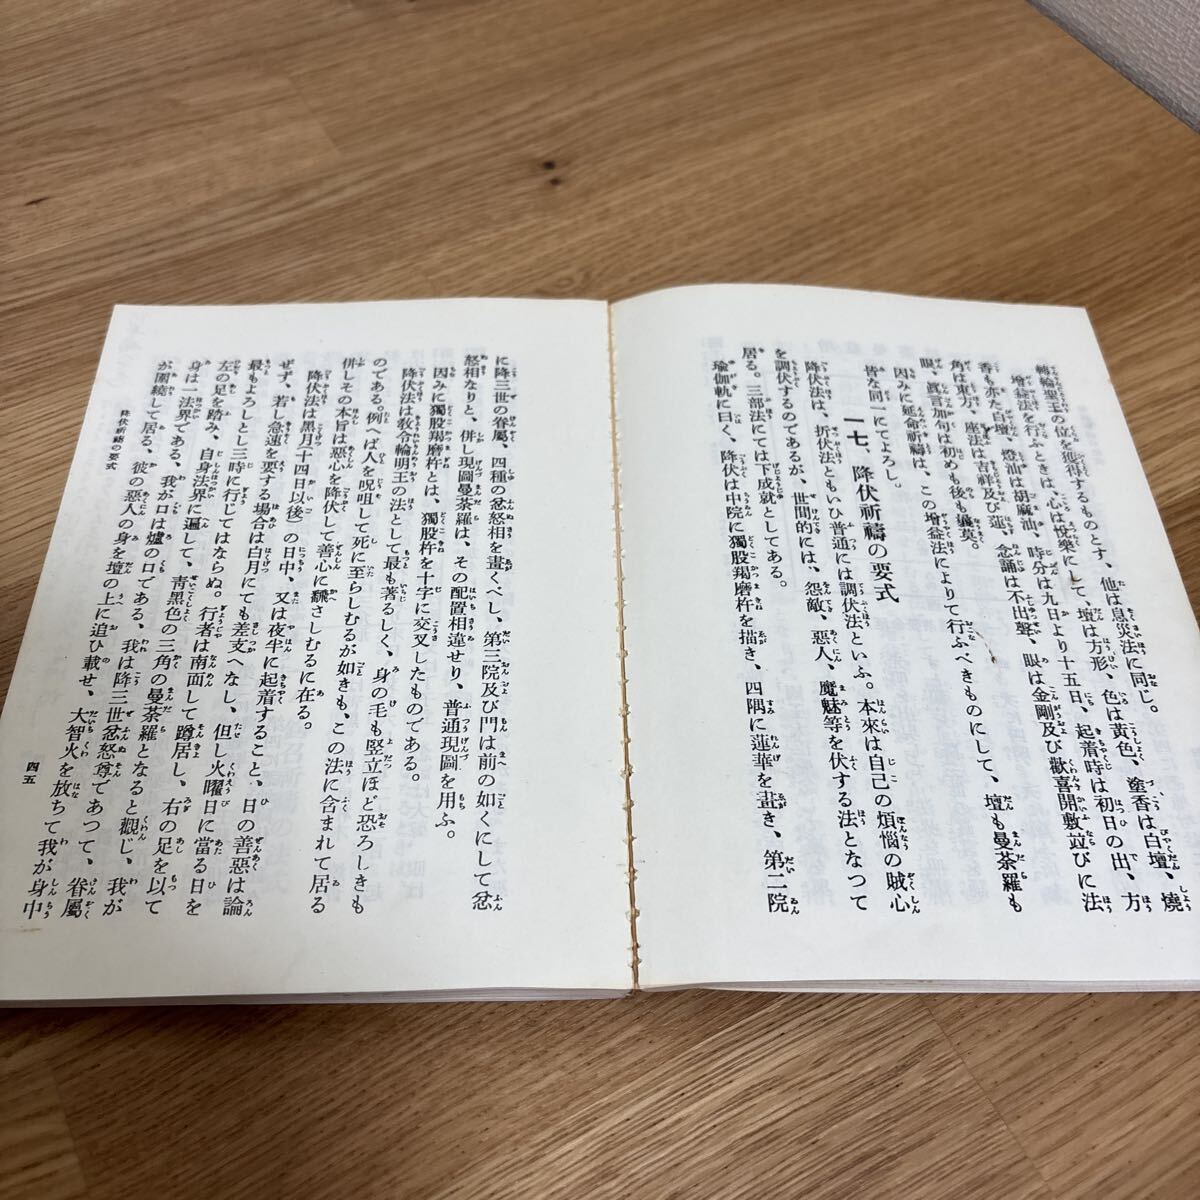 轉輪聖王の位を獲得するものとす、他は息災法に同じ。
増益法を行ふときは、心は悦樂にして、壇は方形、色は黃色、塗香は白壇、燒
香も亦た白壇、燈油は胡麻油、時分は九日より十五日、起着時は初日の出、方
角は東方、座法は吉祥及び蓮、念誦は不出聲、眼は金剛及び歡喜開敷竝びに法
眼、眞言加句は初めも後も孃莫。
因みに延命祈禱は、この増益法によりて行ふべきものにして、壇も曼荼羅も
皆な同一にてよろし。
一七、降伏祈禱の要式
降伏法は、折伏法ともいひ普通には調伏法といふ。本來は自己の煩惱の賊心
を調伏するのであるが、世間的には、怨敵、惡人、魔魅等を伏する法となつて
居る。三部法にては下成就としてある。
瑜伽軌に曰く、降伏は中院に獨股羯磨杵を描き、四隅に蓮華を畫き、第二院
に降三世の眷屬、四種の忿怒相を畫くべし、第三院及び門は前の如くにして忿
怒相なりと、併し現圖曼荼羅は、その配置相違せり、普通現圖を用ふ。
因みに獨股羯磨杵とは、獨股杵を十字に交叉したものである。
降伏法は敎令輪明王の法として最も著るしく、身の毛も竪立ほど恐ろしきも
のである。例へば人を呪咀して死に至らしむるが如きも、この法に含まれて居る
併しその本旨は惡心を降伏して善心に飜さしむるに在る。
降伏法は黑月(十四日以後)の日中、又は夜半に起着すること、日の善惡は論
ぜず、若し急速を要する場合は白月にても差支へなし、但し火曜日に當る日を
最もよろしとし三時に行じてはならぬ。行者は南面して蹲居し、右の足を以て
左の足を踏み、自身法界に遍して、靑黑色の三角の曼荼羅となると觀じ、我が
身は一法界である、我が口は爐の口である、我は降三世忿怒尊であつて、眷屬
が圍繞して居る、彼の惡人の身を壇の上に追ひ載せ、大智火を放ちて我が身中
降伏祈禱の要式
四五